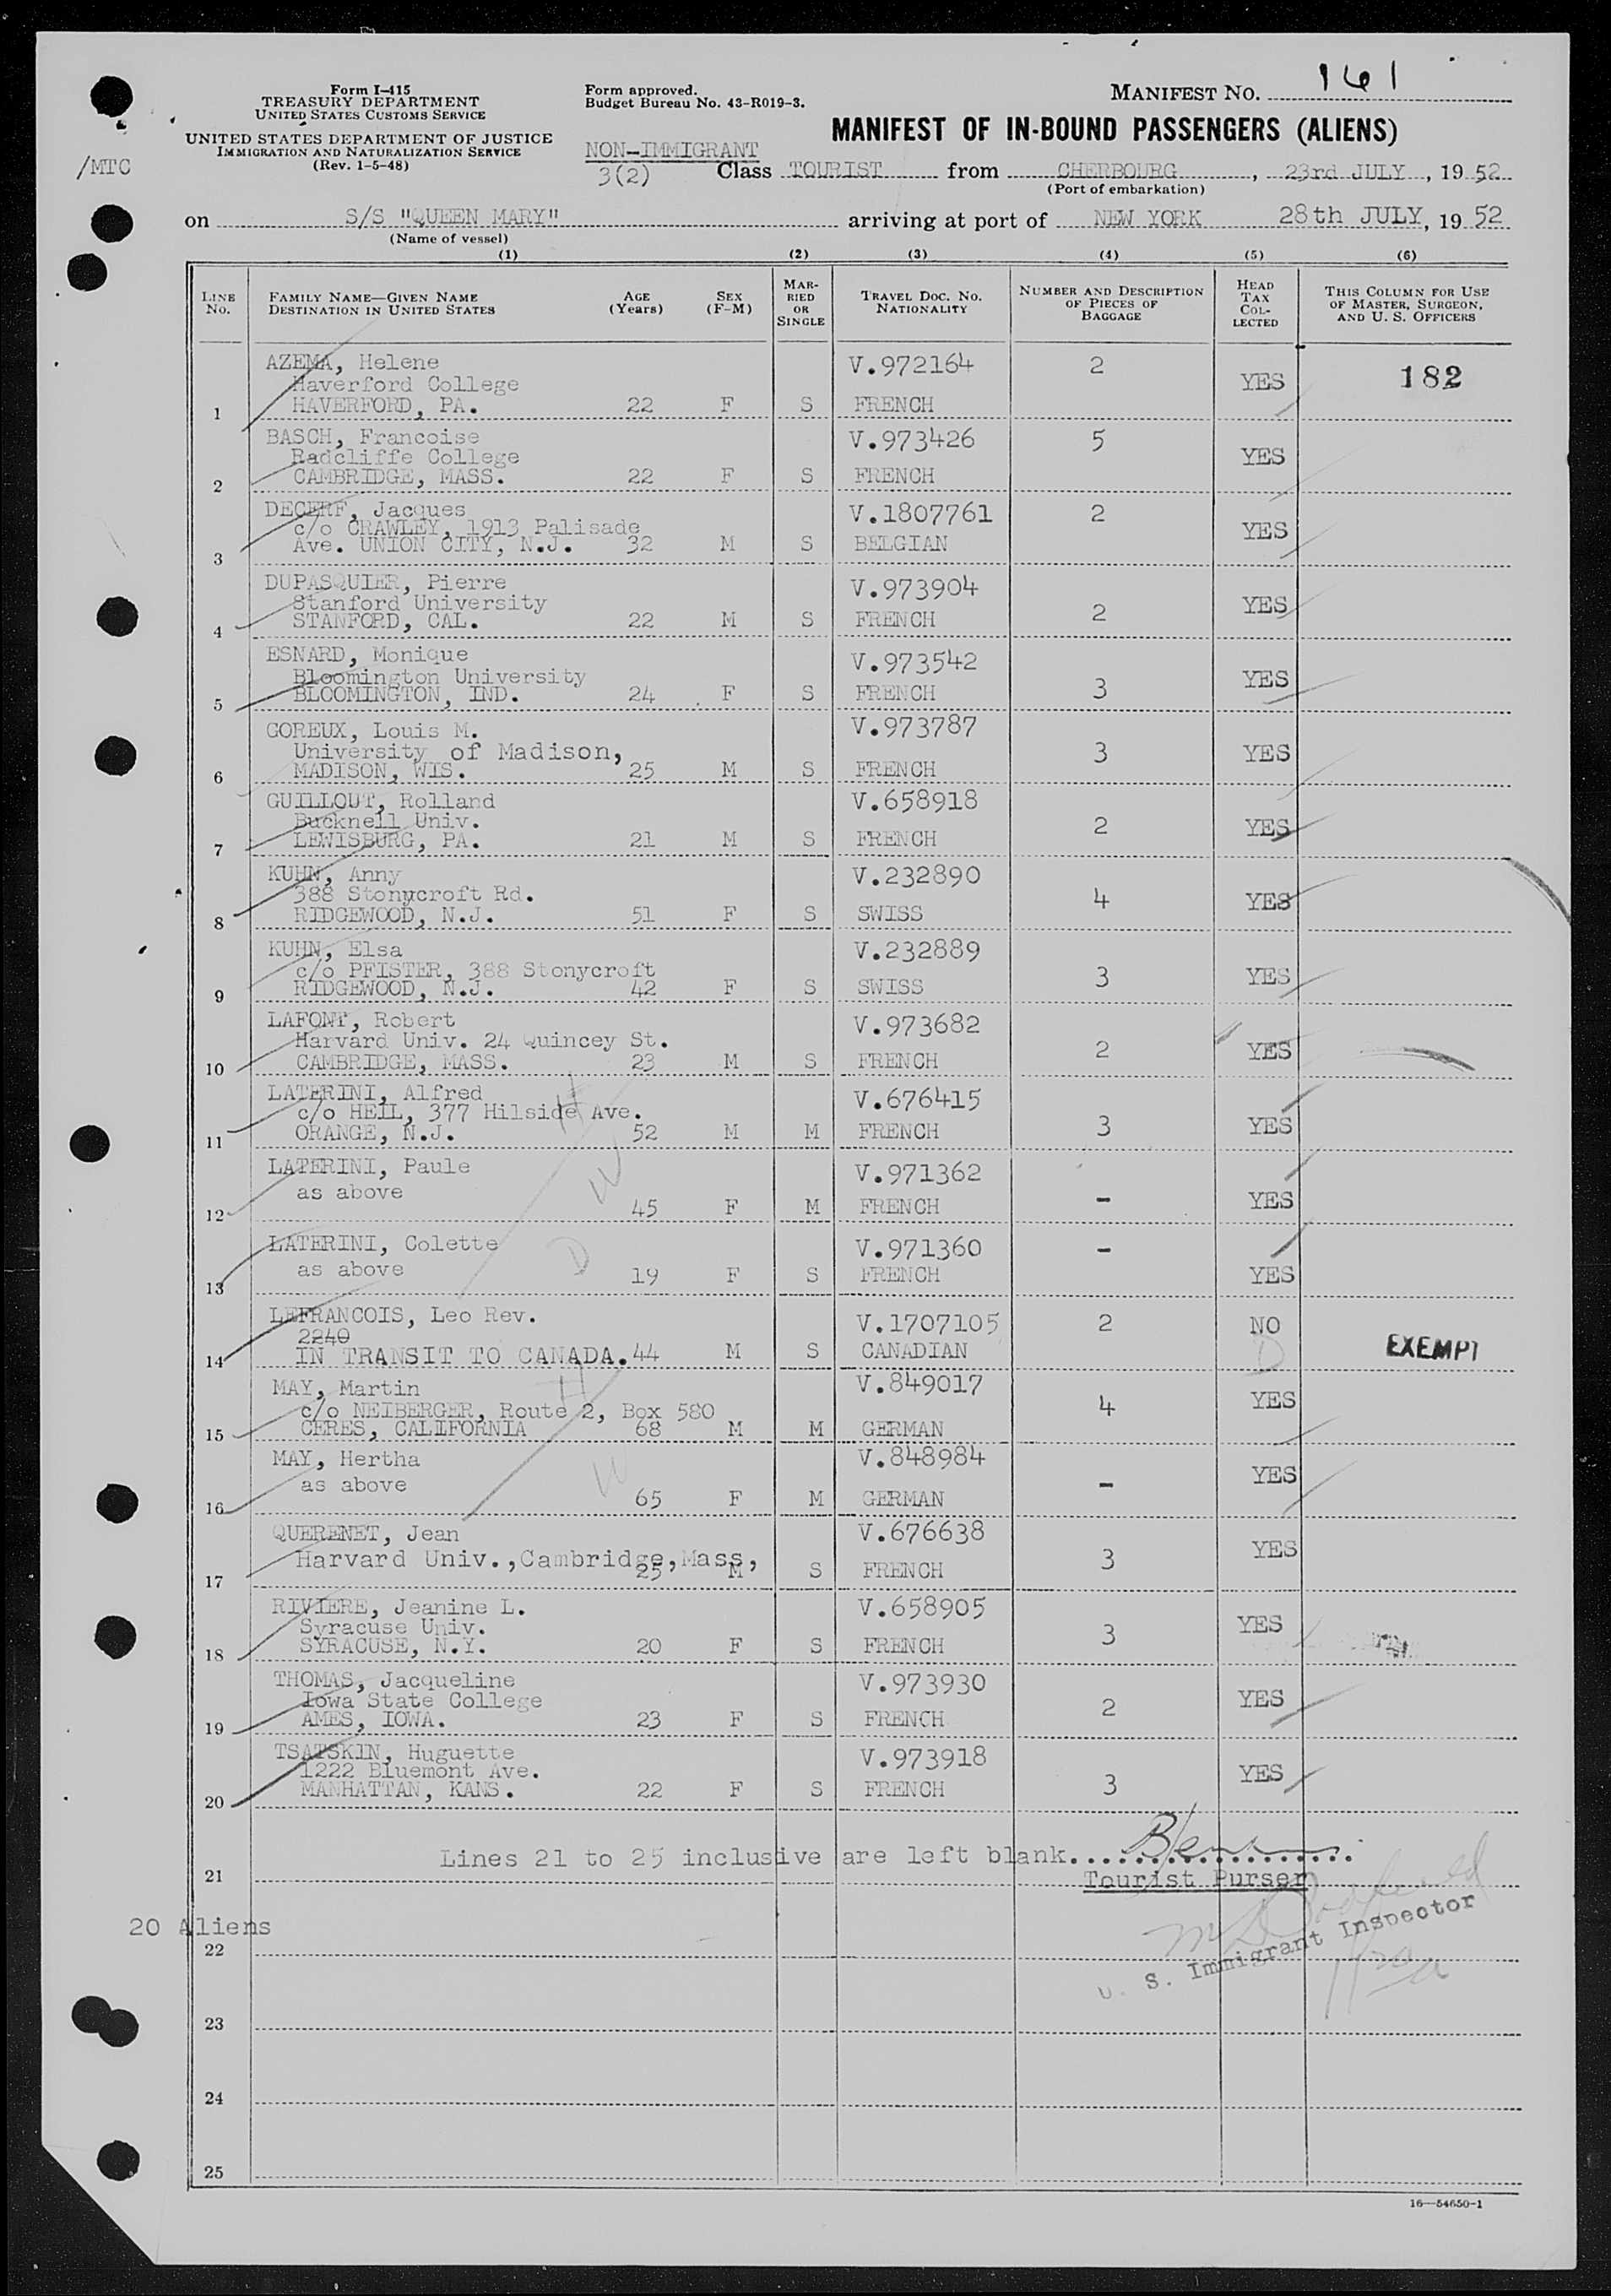 Form I-415
TREASURY DEPARTMENT
UNITED STATES CUSTOMS SERVICE
UNITED STATES DEPARTMENT OF JUSTICE
IMMIGRATION AND NATURALIZATION SERVICE
(Rev. 1-5-48)
/MTC
Form approved.
Budget Bureau No. 43-R019-3.
MANIFEST NO. 161
MANIFEST OF IN-BOUND PASSENGERS (ALIENS)
NON-IMMIGRANT
3(2) Class TOURIST from CHERBOURG, 23rd JULY, 1952
(Port of embarkation)
on S/S "QUEEN MARY" arriving at port of NEW YORK 28th JULY, 19 52
(Name of vessel)
(1) (2) (3) (4) (5) (6)
LINE NO. FAMILY NAME—GIVEN NAME DESTINATION IN UNITED STATES AGE (Years) SEX (F-M) MARRIED OR SINGLE TRAVEL DOC. NO. NATIONALITY NUMBER AND DESCRIPTION OF PIECES OF BAGGAGE HEAD TAX COLLECTED THIS COLUMN FOR USE OF MASTER, SURGEON, AND U. S. OFFICERS
AZEMA, Helene V.972164 2
Haverford College YES 182
1 HAVERFORD, PA. 22 F S FRENCH
BASCH, Francoise V.973426 5
Radcliffe College YES
2 CAMBRIDGE, MASS. 22 F S FRENCH
DECERF, Jacques V.1807761 2
c/o CRAWLEY, 1913 Palisade YES
3 Ave. UNION CITY, N.J. 32 M S BELGIAN
DUPASQUIER, Pierre V.973904
Stanford University YES
4 STANFORD, CAL. 22 M S FRENCH 2
ESNARD, Monique V.973542
Bloomington University YES
5 BLOOMINGTON, IND. 24 F S FRENCH 3
GOREUX, Louis M. V.973787
University of Madison, 3 YES
6 MADISON, WIS. 25 M S FRENCH
GUILLOUT, Rolland V.658918
Bucknell Univ. 2 YES
7 LEWISBURG, PA. 21 M S FRENCH
KUHN, Anny V.232890
388 Stonycroft Rd. 4 YES
8 RIDGEWOOD, N.J. 51 F S SWISS
KUHN, Elsa V.232889
c/o PFISTER, 388 Stonycroft 3 YES
9 RIDGEWOOD, N.J. 42 F S SWISS
LAFONT, Robert V.973682
Harvard Univ. 24 Quincey St. 2 YES
10 CAMBRIDGE, MASS. 23 M S FRENCH
LATERINI, Alfred V.676415
c/o HEIL, 377 Hilside Ave. 3 YES
11 ORANGE, N.J. 52 M M FRENCH
LATERINI, Paule V.971362
as above - YES
12 45 F M FRENCH
LATERINI, Colette V.971360 -
as above YES
13 19 F S FRENCH
LEFRANCOIS, Leo Rev. V.1707105 2 NO
2240 EXEMPT
14 IN TRANSIT TO CANADA. 44 M S CANADIAN
MAY, Martin V.849017
c/o NEIBERGER, Route 2, Box 580 4 YES
15 CERES, CALIFORNIA 68 M M GERMAN
MAY, Hertha V.848984
as above - YES
16 65 F M GERMAN
QUERENET, Jean V.676638
Harvard Univ.,Cambridge,Mass, 3 YES
17 25 M S FRENCH
RIVIERE, Jeanine L. V.658905
Syracuse Univ. 3 YES
18 SYRACUSE, N.Y. 20 F S FRENCH
THOMAS, Jacqueline V.973930
Iowa State College 2 YES
19 AMES, IOWA. 23 F S FRENCH
TSATSKIN, Huguette V.973918
1222 Bluemont Ave. 3 YES
20 MANHATTAN, KANS. 22 F S FRENCH
Lines 21 to 25 inclusive are left blank...................
21 Tourist Purser
20 Aliens
22 U. S. Immigrant Inspector
23
24
25
16—54650-1